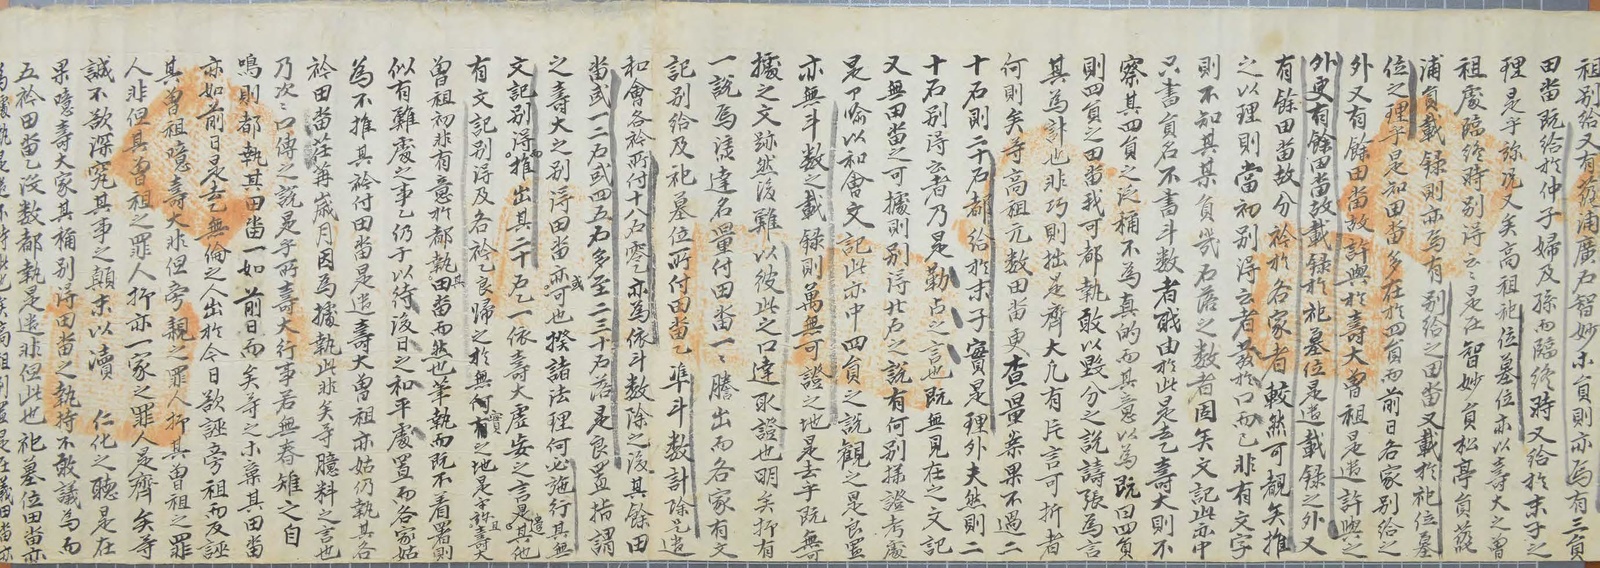 祖別給又有菰浦廣石智妙朩員則亦爲有三員
田畓旣給於仲子婦及孫而臨終時又給於末子之
理是乎旀況又矣高祖祀位墓位亦以壽大之曾
祖處臨終時別得云云是在智妙員松亭員菰
浦員載錄則亦爲有別給之田畓又載於祀位墓
位之理乎是如田畓多在於四員而前日各家別給之
外又有餘田畓故許與於壽大曾祖是遣許與之
外更有餘田畓故載錄於祀墓位是遣載錄之外又
有餘田畓故分衿於各家者較然可覩矣推
之以理則當初別淂云者發於口而已非有文字
則不知其某員幾石落之數者因矣文記此亦中
只書員名不書斗數者戝由於此是去乙壽大則不
察其四員之泛稱不爲眞的而其意以爲旣曰四員
則四員之田畓我可都執敢以毁分之說譸張爲言
其爲計也非巧則拙是齊大凡有片言可折者
何則矣等高祖元數田畓更査量案果不過二
十石則二十石都給於末子實是理外夫然則二
十石別得云者乃是勒占之言也旣無見在之文記
又無田畓之可據則別淂卄石之說有何別㨾證考處
是乎喩以和會文記此亦中四員之說觀之是良置
亦無斗數之載錄則萬無可證之地是去乎旣無可
據之文跡然後難以彼此之口達取證也明矣抑有
一說焉㵛達名量付田畓一一謄出而各家有文
記別給及祀墓位所付田畓乙準斗數計除是遣
和會各衿所付十八石零乙亦爲依斗數除之後其餘田
畓貳一二石貳四五石多至二三十石落是良置指謂
之壽大之別淂田畓亦或可也揆諸法理何必施行其無
文記別得推出其二十石乙一依壽大虛妄之言是遣其他
有文記別淂及各衿乙良歸之於無實之地是乎旀且壽大
曾祖初非有意於都執其田畓而然也筆執而旣不着署則
似有難處之事乙仍于以待後日之和平處置而各家姑
爲不推其衿付田畓是遣壽大曾祖亦姑仍執其各
衿田畓荏苒歲月因爲據執此非矣等臆料之言也
乃次次口傳之說是乎所壽大行事若無舂雉之自
鳴則都執其田畓一如前日而矣等之朩棄其田畓
亦如前日是去乙無倫之人出於今日欲誣旁祖而反誣
其曾祖噫壽大非但旁親之罪人抑其曾祖之罪
人非但其曾祖之罪人抑亦一家之罪人是齊矣等
誠不欲深究其事之顚末以瀆 仁化之聽是在
果噫壽大家其稱別淂田畓之執持不敢議焉而
五衿田畓乙沒數都執是遣非但此也祀墓位田畓亦